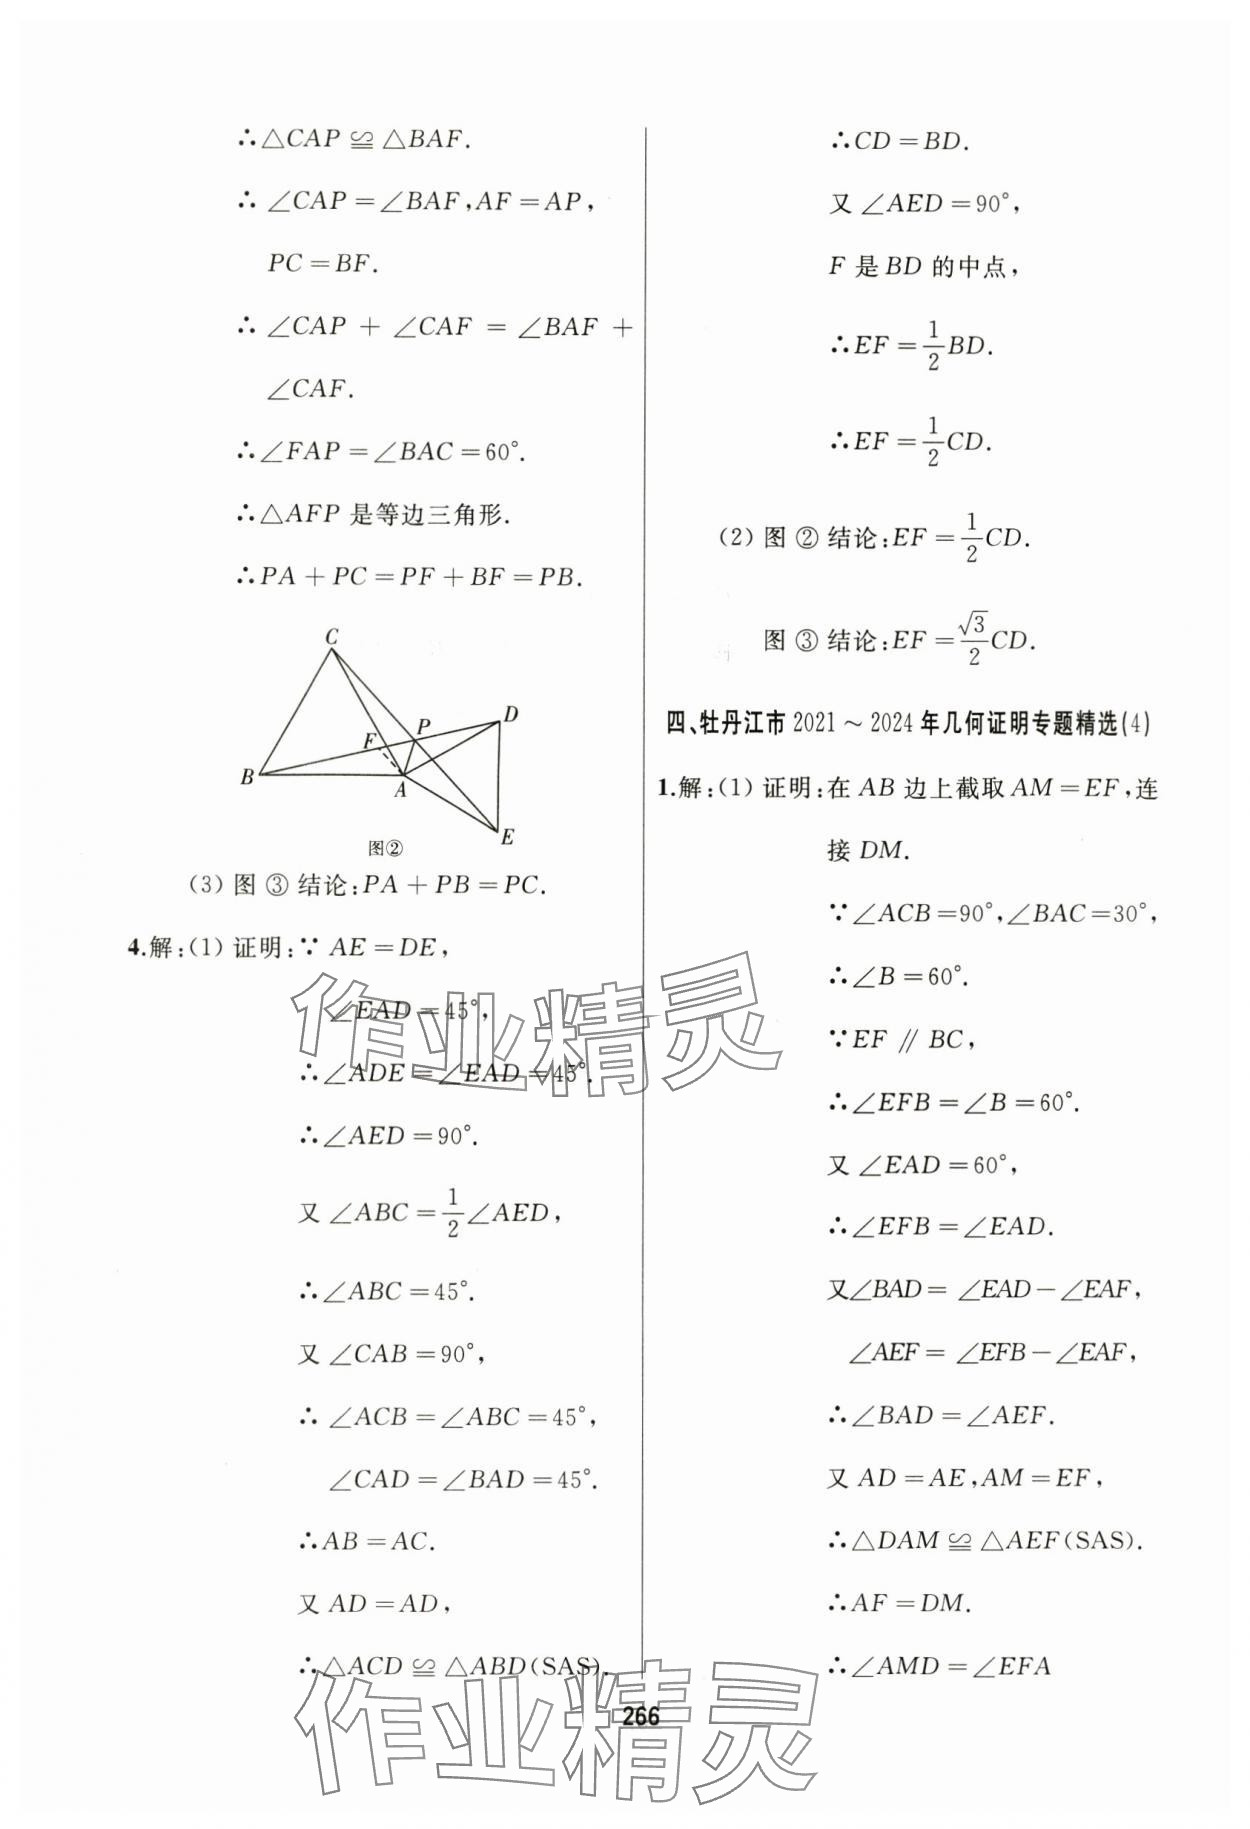 ∴△CAP≌△BAF.
∴∠CAP=∠BAF,AF=AP,
PC=BF.
∴∠CAP+∠CAF=∠BAF+
∠CAF.
∴∠FAP=∠BAC=60°.
∴△AFP是等边三角形.
∴PA+PC=PF+BF=PB.
C
D
P
F
B
A
E
图②
(3)图③结论:PA+PB=PC.
4.解:(1)证明:∵AE=DE,
∠EAD=45°,
∴∠ADE=∠EAD=45°.
∴∠AED=90°.
又∠ABC=1/2∠AED,
∴∠ABC=45°.
又∠CAB=90°,
∴∠ACB=∠ABC=45°,
∠CAD=∠BAD=45°.
∴AB=AC.
又AD=AD,
∴△ACD≌△ABD(SAS).
∴CD=BD.
又∠AED=90°,
F是BD的中点,
∴EF=1/2BD.
∴EF=1/2CD.
(2)图②结论:EF=1/2CD.
图③结论:EF=√3/2CD.
四、牡丹江市2021～2024年几何证明专题精选(4)
1.解:(1)证明:在AB边上截取AM=EF,连
接DM.
∵∠ACB=90°,∠BAC=30°,
∴∠B=60°.
∵EF∥BC,
∴∠EFB=∠B=60°.
又∠EAD=60°,
∴∠EFB=∠EAD.
又∠BAD=∠EAD-∠EAF,
∠AEF=∠EFB-∠EAF,
∴∠BAD=∠AEF.
又AD=AE,AM=EF,
∴△DAM≌△AEF(SAS).
∴AF=DM.
∴∠AMD=∠EFA
266
作业精灵
作业精灵